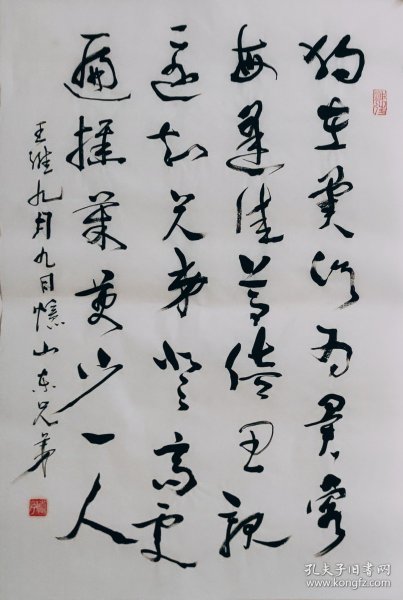 独在異乡为異客
每逢佳节倍思親
遥知兄弟登高处
遍插茱萸少一人
王维九月九日憶山东兄弟
孔夫子旧书网
www.kongfz.com